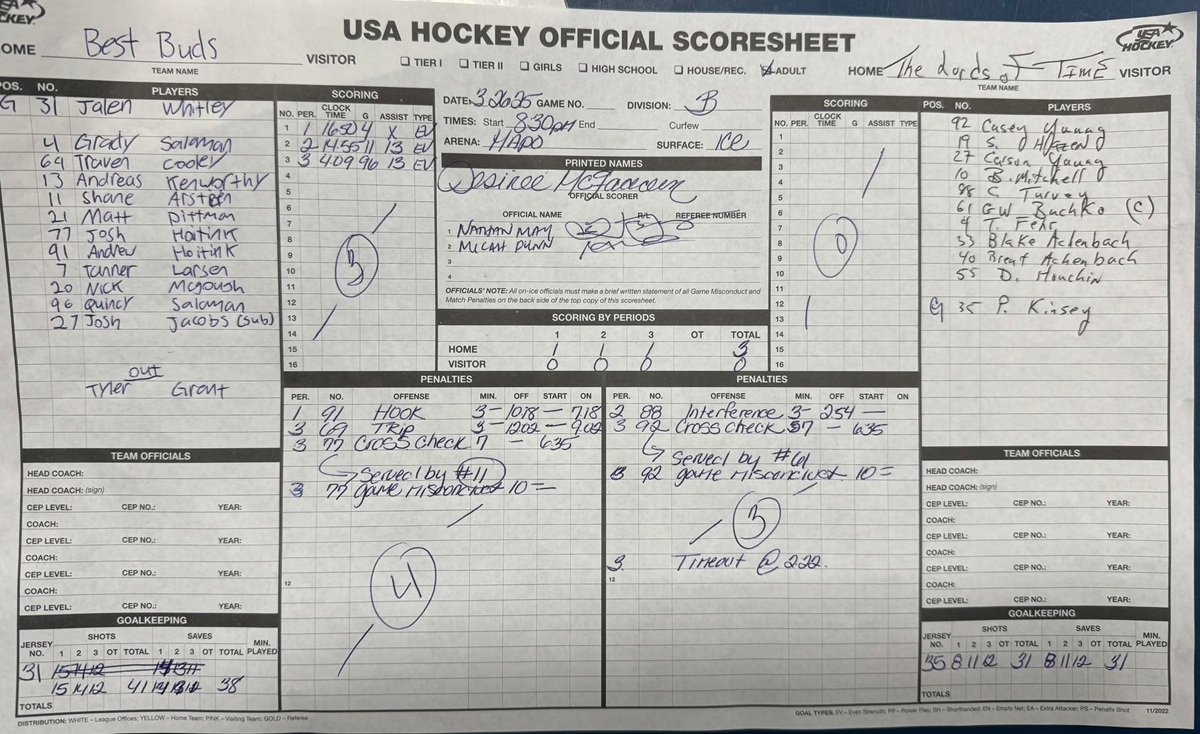 USA HOCKEY OFFICIAL SCORESHEET
USA HOCKEY
OME Best Buds VISITOR
TEAM NAME
☐ TIER I ☐ TIER II ☐ GIRLS ☐ HIGH SCHOOL ☐ HOUSE/REC. ☑ ADULT
HOME The Lords of Time VISITOR
TEAM NAME
POS. NO. PLAYERS
G 31 Jalen Whitley
4 Grady Saloman
64 Traven Cooley
13 Andreas Kenworthy
11 Shane
21 Matt Pittman
77 Josh Hoitink
91 Andrew Hoitink
7 Tanner Larsen
20 Nick Mcgough
96 Quincy Saloman
27 Josh Jacobs (sub)
out
Tyler Grant
TEAM OFFICIALS
HEAD COACH:
HEAD COACH: (sign)
CEP LEVEL: CEP NO.: YEAR:
COACH:
CEP LEVEL: CEP NO.: YEAR:
COACH:
CEP LEVEL: CEP NO.: YEAR:
COACH:
CEP LEVEL: CEP NO.: YEAR:
GOALKEEPING
SHOTS SAVES
JERSEY NO. 1 2 3 OT TOTAL 1 2 3 OT TOTAL MIN. PLAYED
31 15 14 12
15 14 12 41 14 12 38
TOTALS
SCORING
NO. PER. CLOCK TIME G ASSIST TYPE
1 1 1650 4 X EV
2 2 1455 11 13 EV
3 3 409 96 13 EV
4
5
6
7
8
9
10
11
12
13
14
15
16
3
DATE: 32625 GAME NO. DIVISION: B
TIMES: Start 830pm End Curfew
ARENA: MAPO SURFACE: ICE
PRINTED NAMES
Desiree
OFFICIAL SCORER
OFFICIAL NAME REFEREE NUMBER
1 NATHAN MAY
2 MICAH DUNN
3
4
OFFICIALS' NOTE: All on-ice officials must make a brief written statement of all Game Misconduct and
Match Penalties on the back side of the top copy of this scoresheet.
SCORING BY PERIODS
1 2 3 OT TOTAL
HOME 1 1 1 3
VISITOR 0 0 0 0
SCORING
NO. PER. CLOCK TIME G ASSIST TYPE
1
2
3
4
5
6
7
8
9
10
11
12
13
14
15
16
0
PENALTIES
PER. NO. OFFENSE MIN. OFF START ON
1 91 HOOK 3 - 1018 - 718
3 69 TRIP 3 - 1202 - 902
3 77 Cross Check 7 - 635
Served by #11
3 77 game misconduct 10 =
4
12
PENALTIES
PER. NO. OFFENSE MIN. OFF START ON
2 88 Interference 3 - 254 -
3 92 Cross Check 7 - 635
Served by #61
3 92 game misconduct 10 =
3
3 Timeout @ 222.
12
POS. NO. PLAYERS
92 Casey Young
19 S.
27 Carson Young
10 B. Mitchell
88 C. Turvey
61 GW Bachko (C)
4 T. Fehr
33 Blake Achenbach
40 Brent Achenbach
55 D. Houchin
G 35 P. Kinsey
TEAM OFFICIALS
HEAD COACH:
HEAD COACH: (sign)
CEP LEVEL: CEP NO.: YEAR:
COACH:
CEP LEVEL: CEP NO.: YEAR:
COACH:
CEP LEVEL: CEP NO.: YEAR:
COACH:
CEP LEVEL: CEP NO.: YEAR:
GOALKEEPING
SHOTS SAVES
JERSEY NO. 1 2 3 OT TOTAL 1 2 3 OT TOTAL MIN. PLAYED
35 8 11 12 31 8 11 12 31
TOTALS
DISTRIBUTION: WHITE – League Offices; YELLOW – Home Team; PINK – Visiting Team; GOLD – Referee
GOAL TYPES: EV – Even Strength; PP – Power Play; SH – Shorthanded; EN – Empty Net; EA – Extra Attacker; PS – Penalty Shot 11/2022